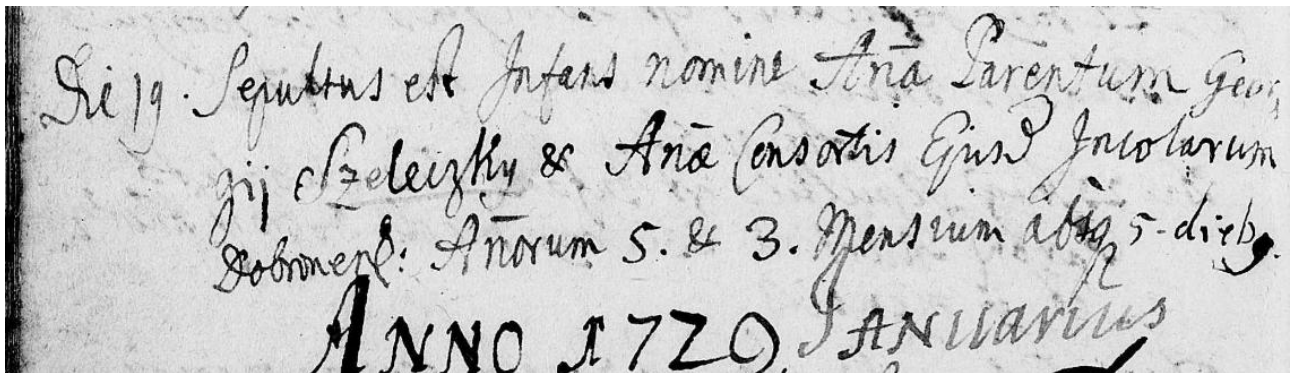 Die 19. Sepultus est Infans nomine Ana Parentum Geor,
gij Szeleczky & Anæ Consortis Ejusd Incolarum
Dobronens: Anorum 5. & 3. Mensium absq 5. dieb9.
ANNO 1720 JANUarius